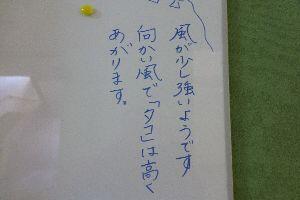 風が少し強いようです
向かい風で「タコ」は高く
あがります。